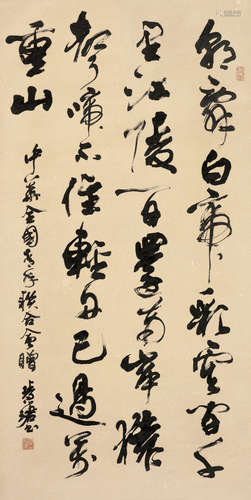 朝辭白帝彩雲間千
里江陵一日還兩岸猿
聲啼不住輕舟已過萬
重山
中華全國青年聯合會贈